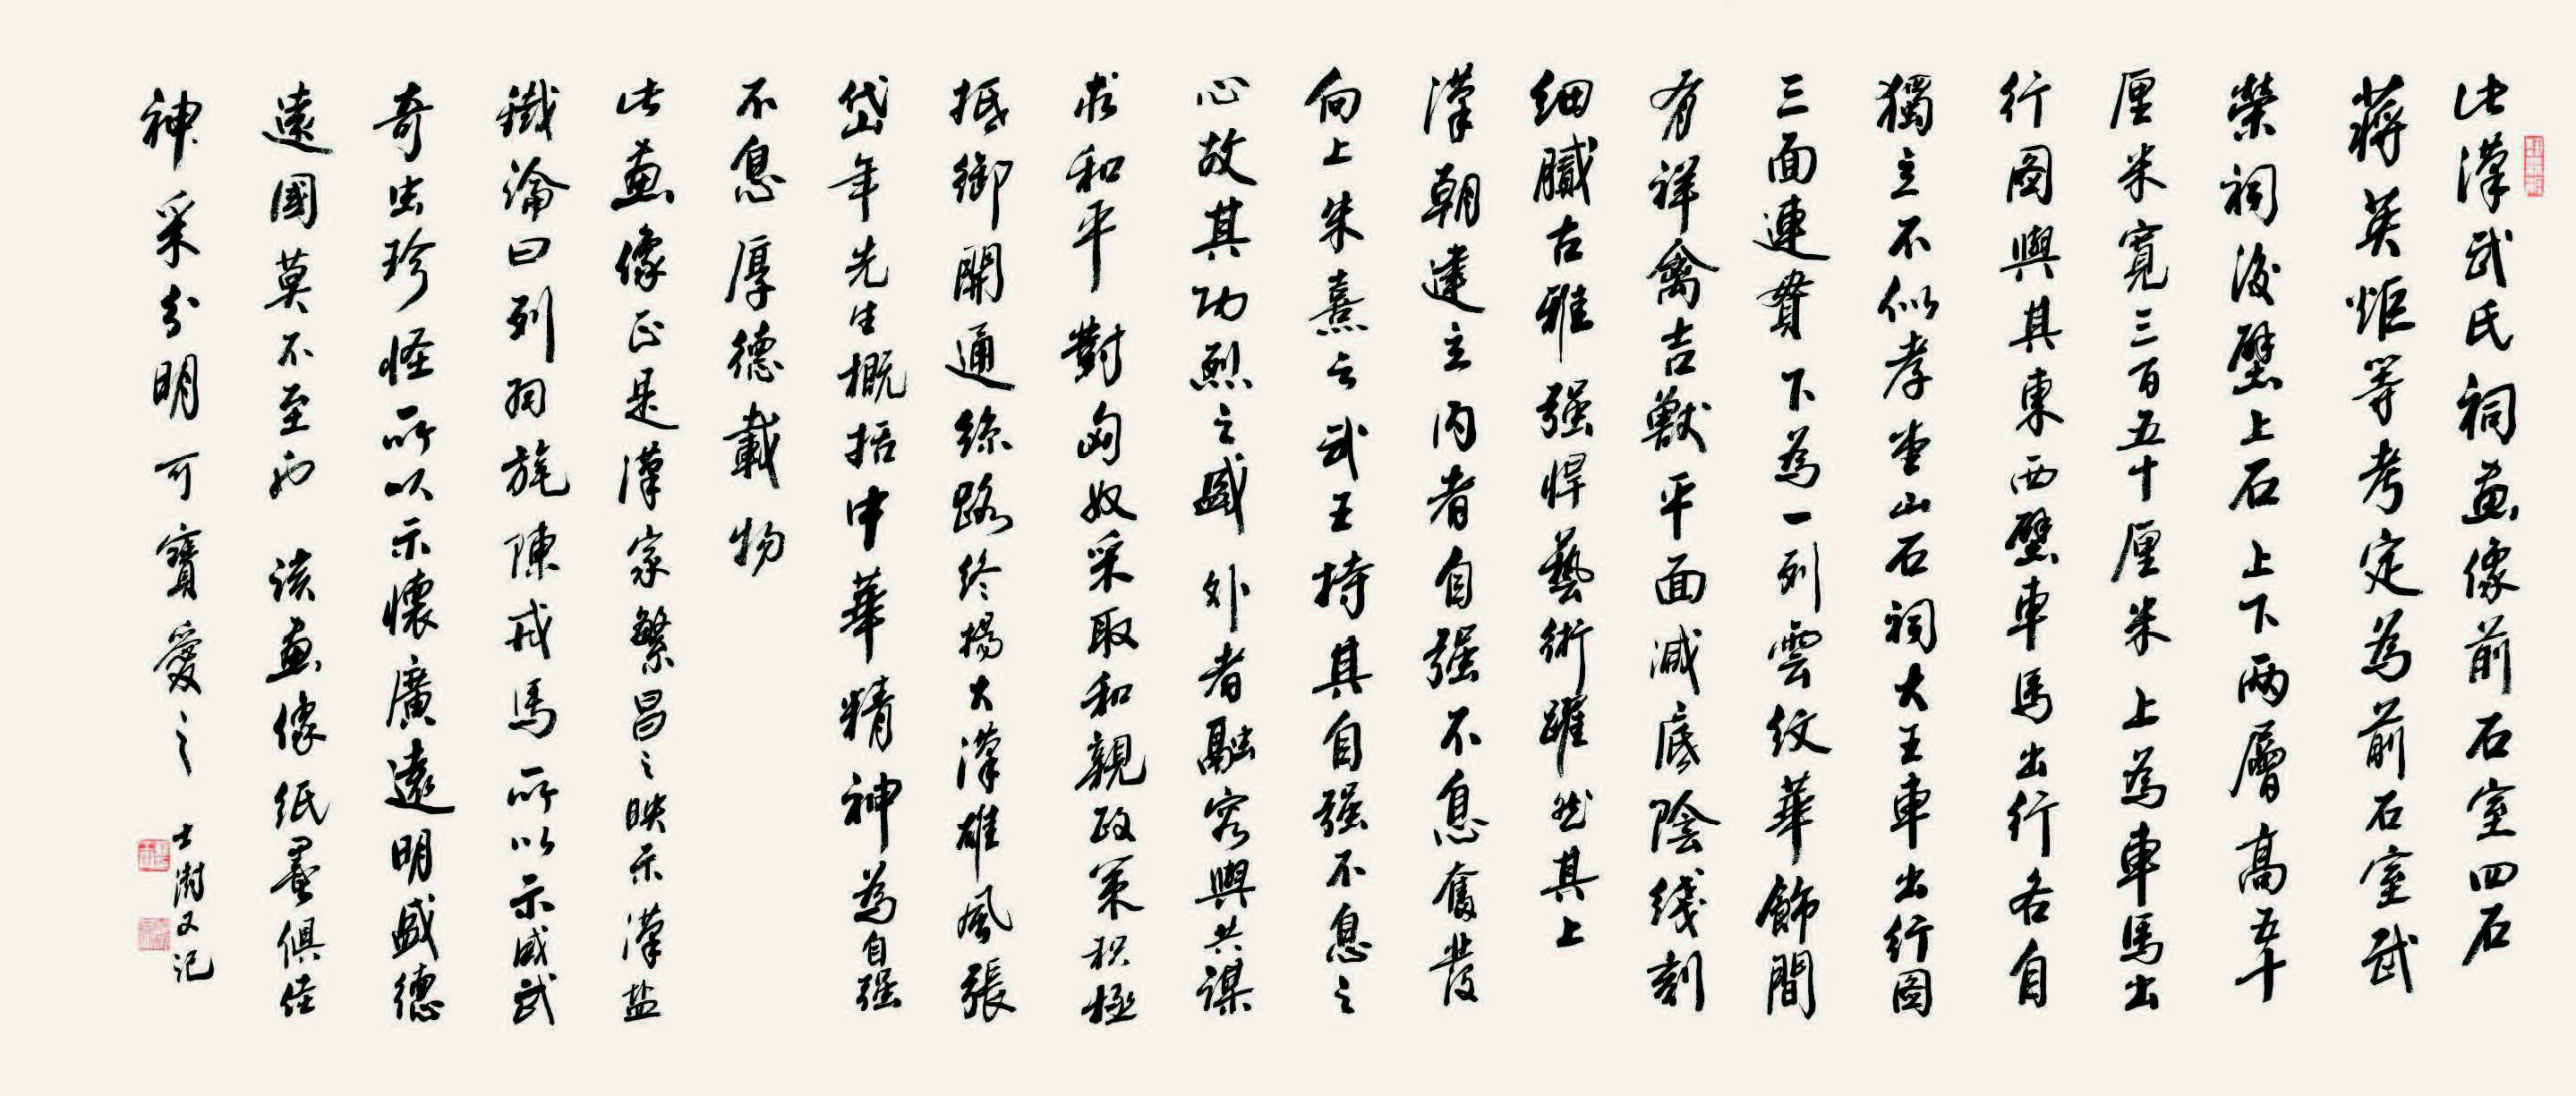 此漢武氏祠畫像前石室四石
蔣英炬等考定為前石室武
榮祠後壁上石上下两層高五十
厘米寬三百五十厘米上為車馬出
行图與其東西壁車馬出行各自
獨立不似孝堂山石祠大王車出行图
三面連貫下為一列雲纹華飾間
有祥禽吉獸平面減底陰綫刻
细膩古雅强悍藝術躍然其上
漢朝建立内者自强不息奮發
向上朱熹云武王持其自强不息之
心故其功烈之盛外者融容與共謀
求和平對匈奴采取和親政策积極
抵御開通絲路终揚大漢雄風張
岱年先生概括中華精神為自强
不息厚德載物
此畫像正是漢家繁昌之映示漢盐
鐵論曰列羽旄陳戎馬所以示威武
奇虫珍怪所以示懷廣遠明盛德
遠國莫不至也該畫像纸墨俱佳
神采分明可寶愛之
士澍又记